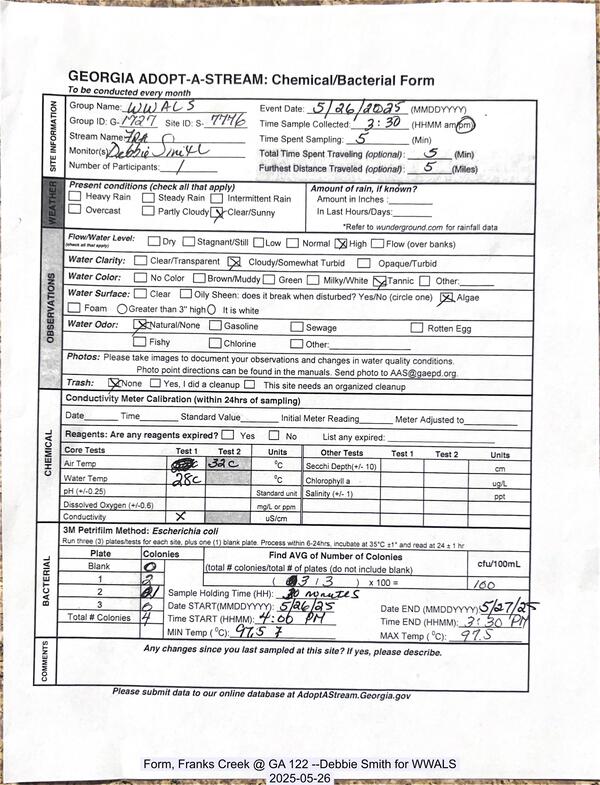 GEORGIA ADOPT-A-STREAM: Chemical/Bacterial Form
To be conducted every month
SITE INFORMATION
Group Name: WWALS Event Date: 5/26/2025 (MMDDYYYY)
Group ID: G-1727 Site ID: S- 7776 Time Sample Collected: 3:30 (HHMM am/pm)
Stream Name: FRA Time Spent Sampling: 5 (Min)
Monitor(s) Debbie Smith Total Time Spent Traveling (optional): 5 (Min)
Number of Participants: 1 Furthest Distance Traveled (optional): 5 (Miles)
WEATHER
Present conditions (check all that apply) Amount of rain, if known?
Heavy Rain Steady Rain Intermittent Rain Amount in Inches :
Overcast Partly Cloudy X Clear/Sunny In Last Hours/Days:
*Refer to wunderground.com for rainfall data
OBSERVATIONS
Flow/Water Level: Dry Stagnant/Still Low Normal X High Flow (over banks)
(check all that apply)
Water Clarity: Clear/Transparent X Cloudy/Somewhat Turbid Opaque/Turbid
Water Color: No Color Brown/Muddy Green Milky/White X Tannic Other:
Water Surface: Clear Oily Sheen: does it break when disturbed? Yes/No (circle one) X Algae
Foam Greater than 3" high It is white
Water Odor: X Natural/None Gasoline Sewage Rotten Egg
Fishy Chlorine Other:
Photos: Please take images to document your observations and changes in water quality conditions.
Photo point directions can be found in the manuals. Send photo to AAS@gaepd.org.
Trash: X None Yes, I did a cleanup This site needs an organized cleanup
CHEMICAL
Conductivity Meter Calibration (within 24hrs of sampling)
Date Time Standard Value Initial Meter Reading Meter Adjusted to
Reagents: Are any reagents expired? Yes No List any expired:
Core Tests Test 1 Test 2 Units Other Tests Test 1 Test 2 Units
Air Temp 32c °C Secchi Depth(+/- 10) cm
Water Temp 28c °C Chlorophyll a ug/L
pH (+/-0.25) Standard unit Salinity (+/- 1) ppt
Dissolved Oxygen (+/-0.6) mg/L or ppm
Conductivity X uS/cm
BACTERIAL
3M Petrifilm Method: Escherichia coli
Run three (3) plates/tests for each site, plus one (1) blank plate. Process within 6-24hrs, incubate at 35°C ±1° and read at 24 ± 1 hr
Plate Colonies Find AVG of Number of Colonies cfu/100mL
Blank 0 (total # colonies/total # of plates (do not include blank)
1 2 ( ) x 100 = 100
2 Sample Holding Time (HH): 30 minutes
3 0 Date START(MMDDYYYY): 5/26/25 Date END (MMDDYYYY) 5/27/25
Total # Colonies 4 Time START (HHMM): 4:00 PM Time END (HHMM): 3:30 PM
MIN Temp (°C): 97.5 MAX Temp (°C): 97.5
COMMENTS
Any changes since you last sampled at this site? If yes, please describe.
Please submit data to our online database at AdoptAStream.Georgia.gov
Form, Franks Creek @ GA 122 --Debbie Smith for WWALS
2025-05-26